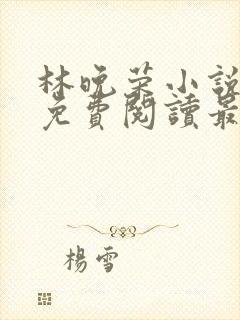 林晚荣小說
免費閱讀最
楊雪